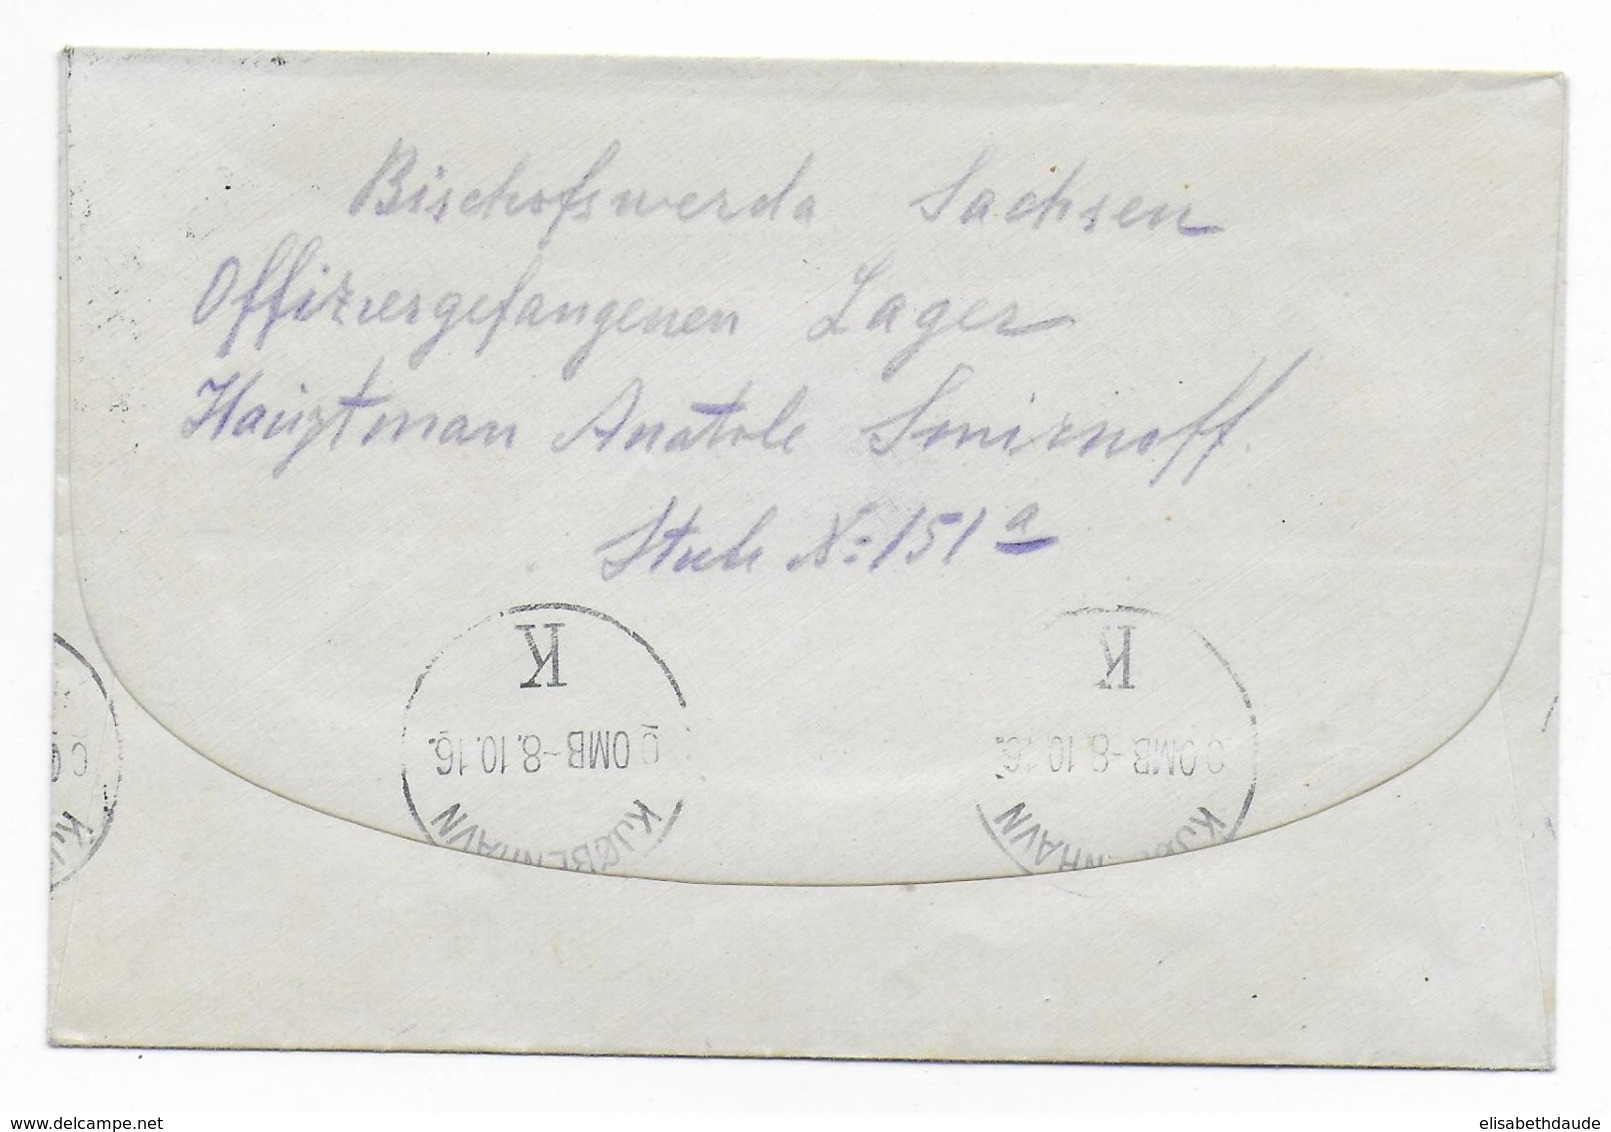 Bischofswerda Sachsen
Offiziergefangenen Lager
Hauptman Anatole Smirnoff.
Stube No: 151a
K
OMB -8.10.16.
KJØBENHAVN
K
OMB -8.10.16.
KJØBENHAVN
elisabethdaude